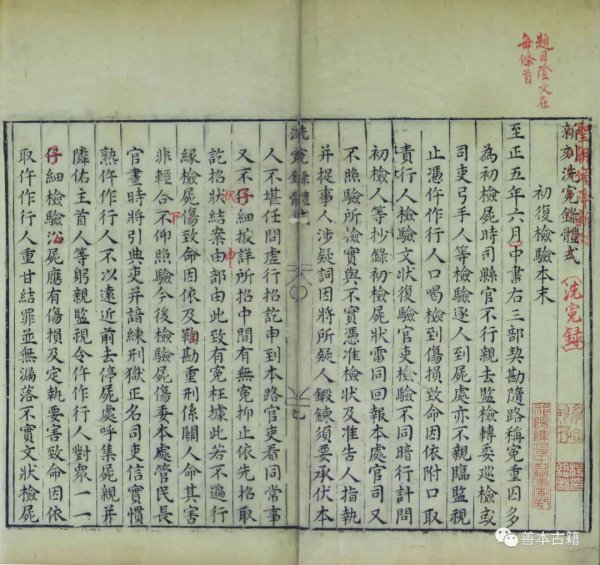 題目陰文在
每條首
新刻洗冤錄體式
洗冤録
初復檢驗本末
至正五年六月中書右三部契勘隨路稱冤重囚多
為初檢屍時司縣官不行親去監檢轉委巡檢或
司吏弓手人等檢驗逐人到屍處亦不親臨監視
止憑仵作行人口喝檢到傷損致命因依附口取
責行人檢驗文狀復驗官吏檢驗不同暗行計問
初檢人等抄錄初檢屍狀雷同回報本處官司又
不照驗所檢實與不實憑准檢狀及准告人指執
并捉事人涉疑詞因將所疑人鍛鍊須要承伏本
洗冤錄體式
人不堪任問虛行招訖申到本路官吏看同常事
又不仔細披詳所招中間有無冤抑止依先招取
伏
申
訖招狀結案由部由此致有冤枉據此若不遍行
緣檢屍傷致命因依及勘重刑係關人命其害
下
非輕合不仰照驗今後檢驗屍傷委本處管民長
官畫時將引典吏并諳練刑獄正名司吏信實慣
熟仵作行人不以遠近前去停屍處呼集屍親并
隣佑主首人等躬親監視令仵作行人對衆一一
仔細檢驗沿屍應有傷損及定執要害致命因依
取仵作行人重甘結罪並無漏落不實文狀檢屍
善本古籍